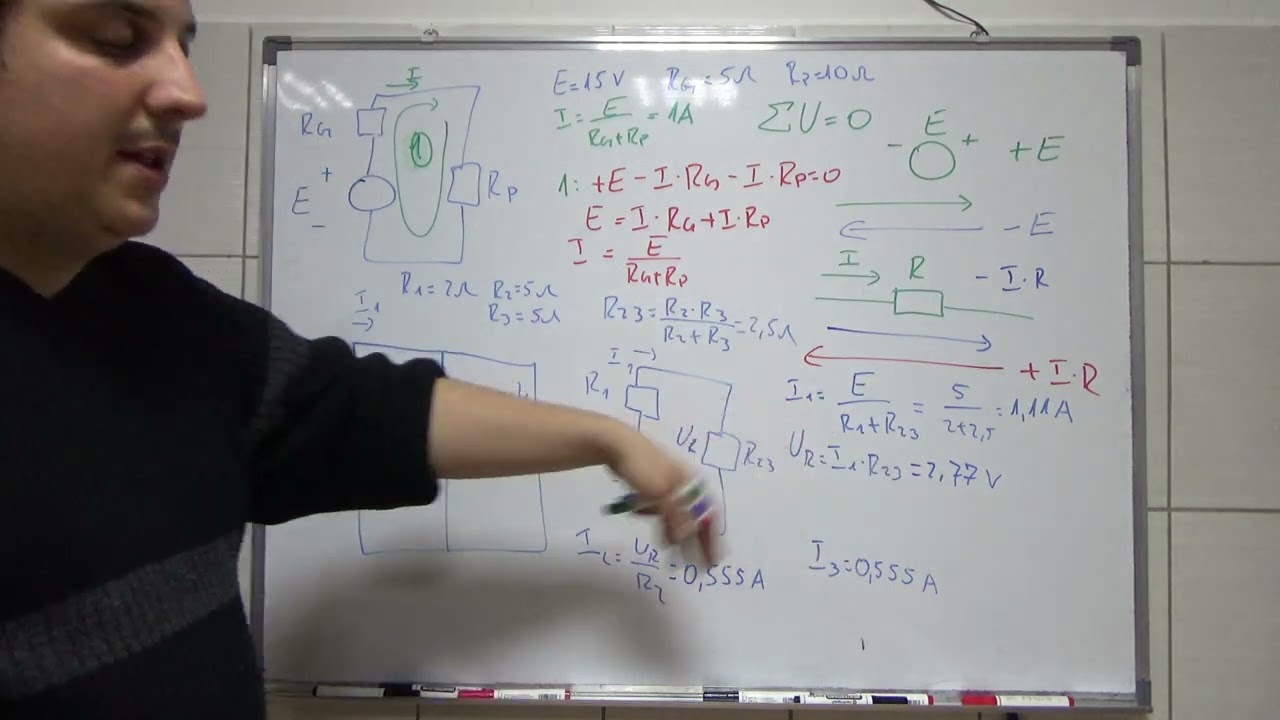 I
R_G
E
+
−
R_P
1
E=15V R_G=5Ω R_P=10Ω
I=E/(R_G+R_P)=1A
ΣU=0
1: +E−I·R_G−I·R_P=0
E=I·R_G+I·R_P
I=E/(R_G+R_P)
− E + +E
−E
I R −I·R
+I·R
R_1=2Ω R_2=5Ω
R_3=5Ω
I_1
R_23=(R_2·R_3)/(R_2+R_3)=2,5Ω
I_1
R_1
U_R
R_23
I_1=E/(R_1+R_23)=5/(2+2,5)=1,11A
U_R=I_1·R_23=2,77V
I_2=U_R/R_2=0,555A
I_3=0,555A